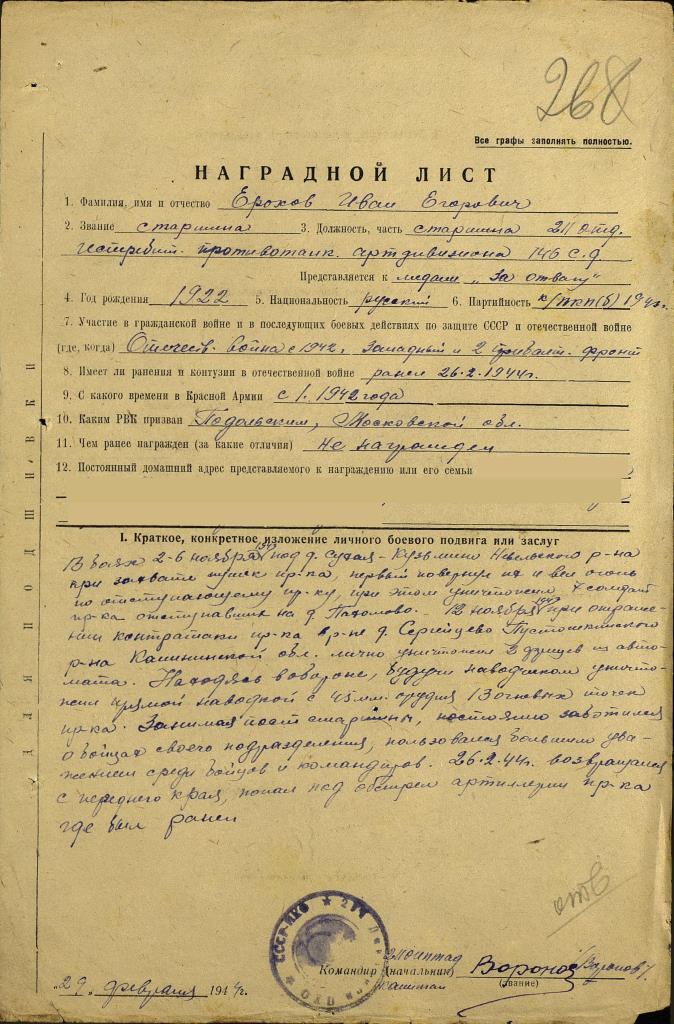 268
Все графы заполнять полностью.
НАГРАДНОЙ ЛИСТ
1. Фамилия, имя и отчество Ерохов Иван Егорович
2. Звание старшина 3. Должность, часть старшина 211 отд.
истребит. противотанк. артдивизиона 146 с.д.
Представляется к медали „За отвагу"
4. Год рождения 1922 5. Национальность русский 6. Партийность к/ВКП(б) 1943г.
7. Участие в гражданской войне и в последующих боевых действиях по защите СССР и отечественной войне
(где, когда) Отечеств. война с 1942г. Западный и 2 прибалт. фронт
8. Имеет ли ранения и контузии в отечественной войне ранен 26.2.1944г.
9. С какого времени в Красной Армии с 1.1942 года
10. Каким РВК призван Подольским, Московской обл.
11. Чем ранее награжден (за какие отличия) не награжден
12. Постоянный домашний адрес представляемого к награждению или его семьи
I. Краткое, конкретное изложение личного боевого подвига или заслуг
В боях 2-6 ноября 1943 под д. Кузьмино Невельского р-на
при захвате пушек пр-ка, первый повернул их и вел огонь
по отступающему пр-ку, при этом уничтожил 7 солдат
пр-ка отступавших на д. Пахомово. 12 ноября 1943 при отраже-
нии контратаки пр-ка в р-не д. Сергейцево Пустошкинского
р-на Калининской обл. лично уничтожил 3 фрицев из авто-
мата. Находясь в обороне, будучи наводчиком уничто-
жил прямой наводкой с 45 мм. орудия 13 огневых точек
пр-ка. Занимая пост старшины, постоянно заботился
о бойцах своего подразделения, пользовался большим ува-
жением среди бойцов и командиров. 26.2.44г. возвращаясь
с переднего края, попал под обстрел артиллерии пр-ка
где был ранен
отв
СССР-НКО
Командир (начальник) капитан Воронов /Воронов/
(звание)
„29" февраля 1944г.
ДЛЯ ПОДШИВКИ